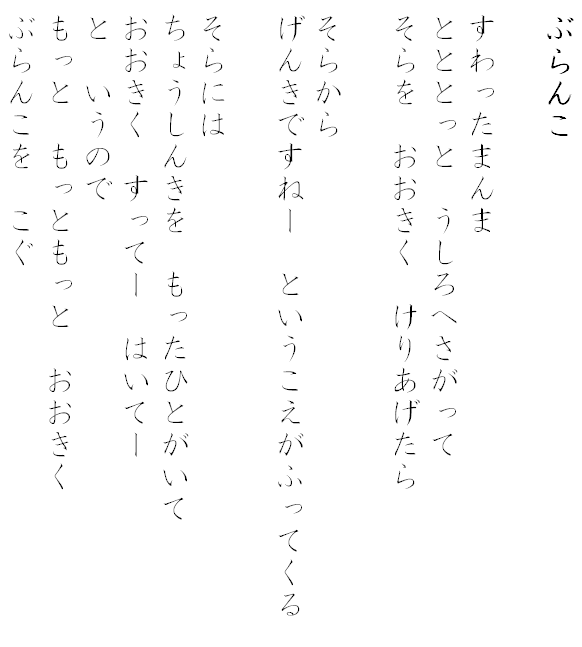 ぶらんこ
すわったまんま
とととっと　うしろへさがって
そらを　おおきく　けりあげたら
そらから
げんきですねー　というこえがふってくる
そらには
ちょうしんきを　もったひとがいて
おおきく　すってー　はいてー
と　いうので
もっと　もっともっと　おおきく
ぶらんこを　こぐ